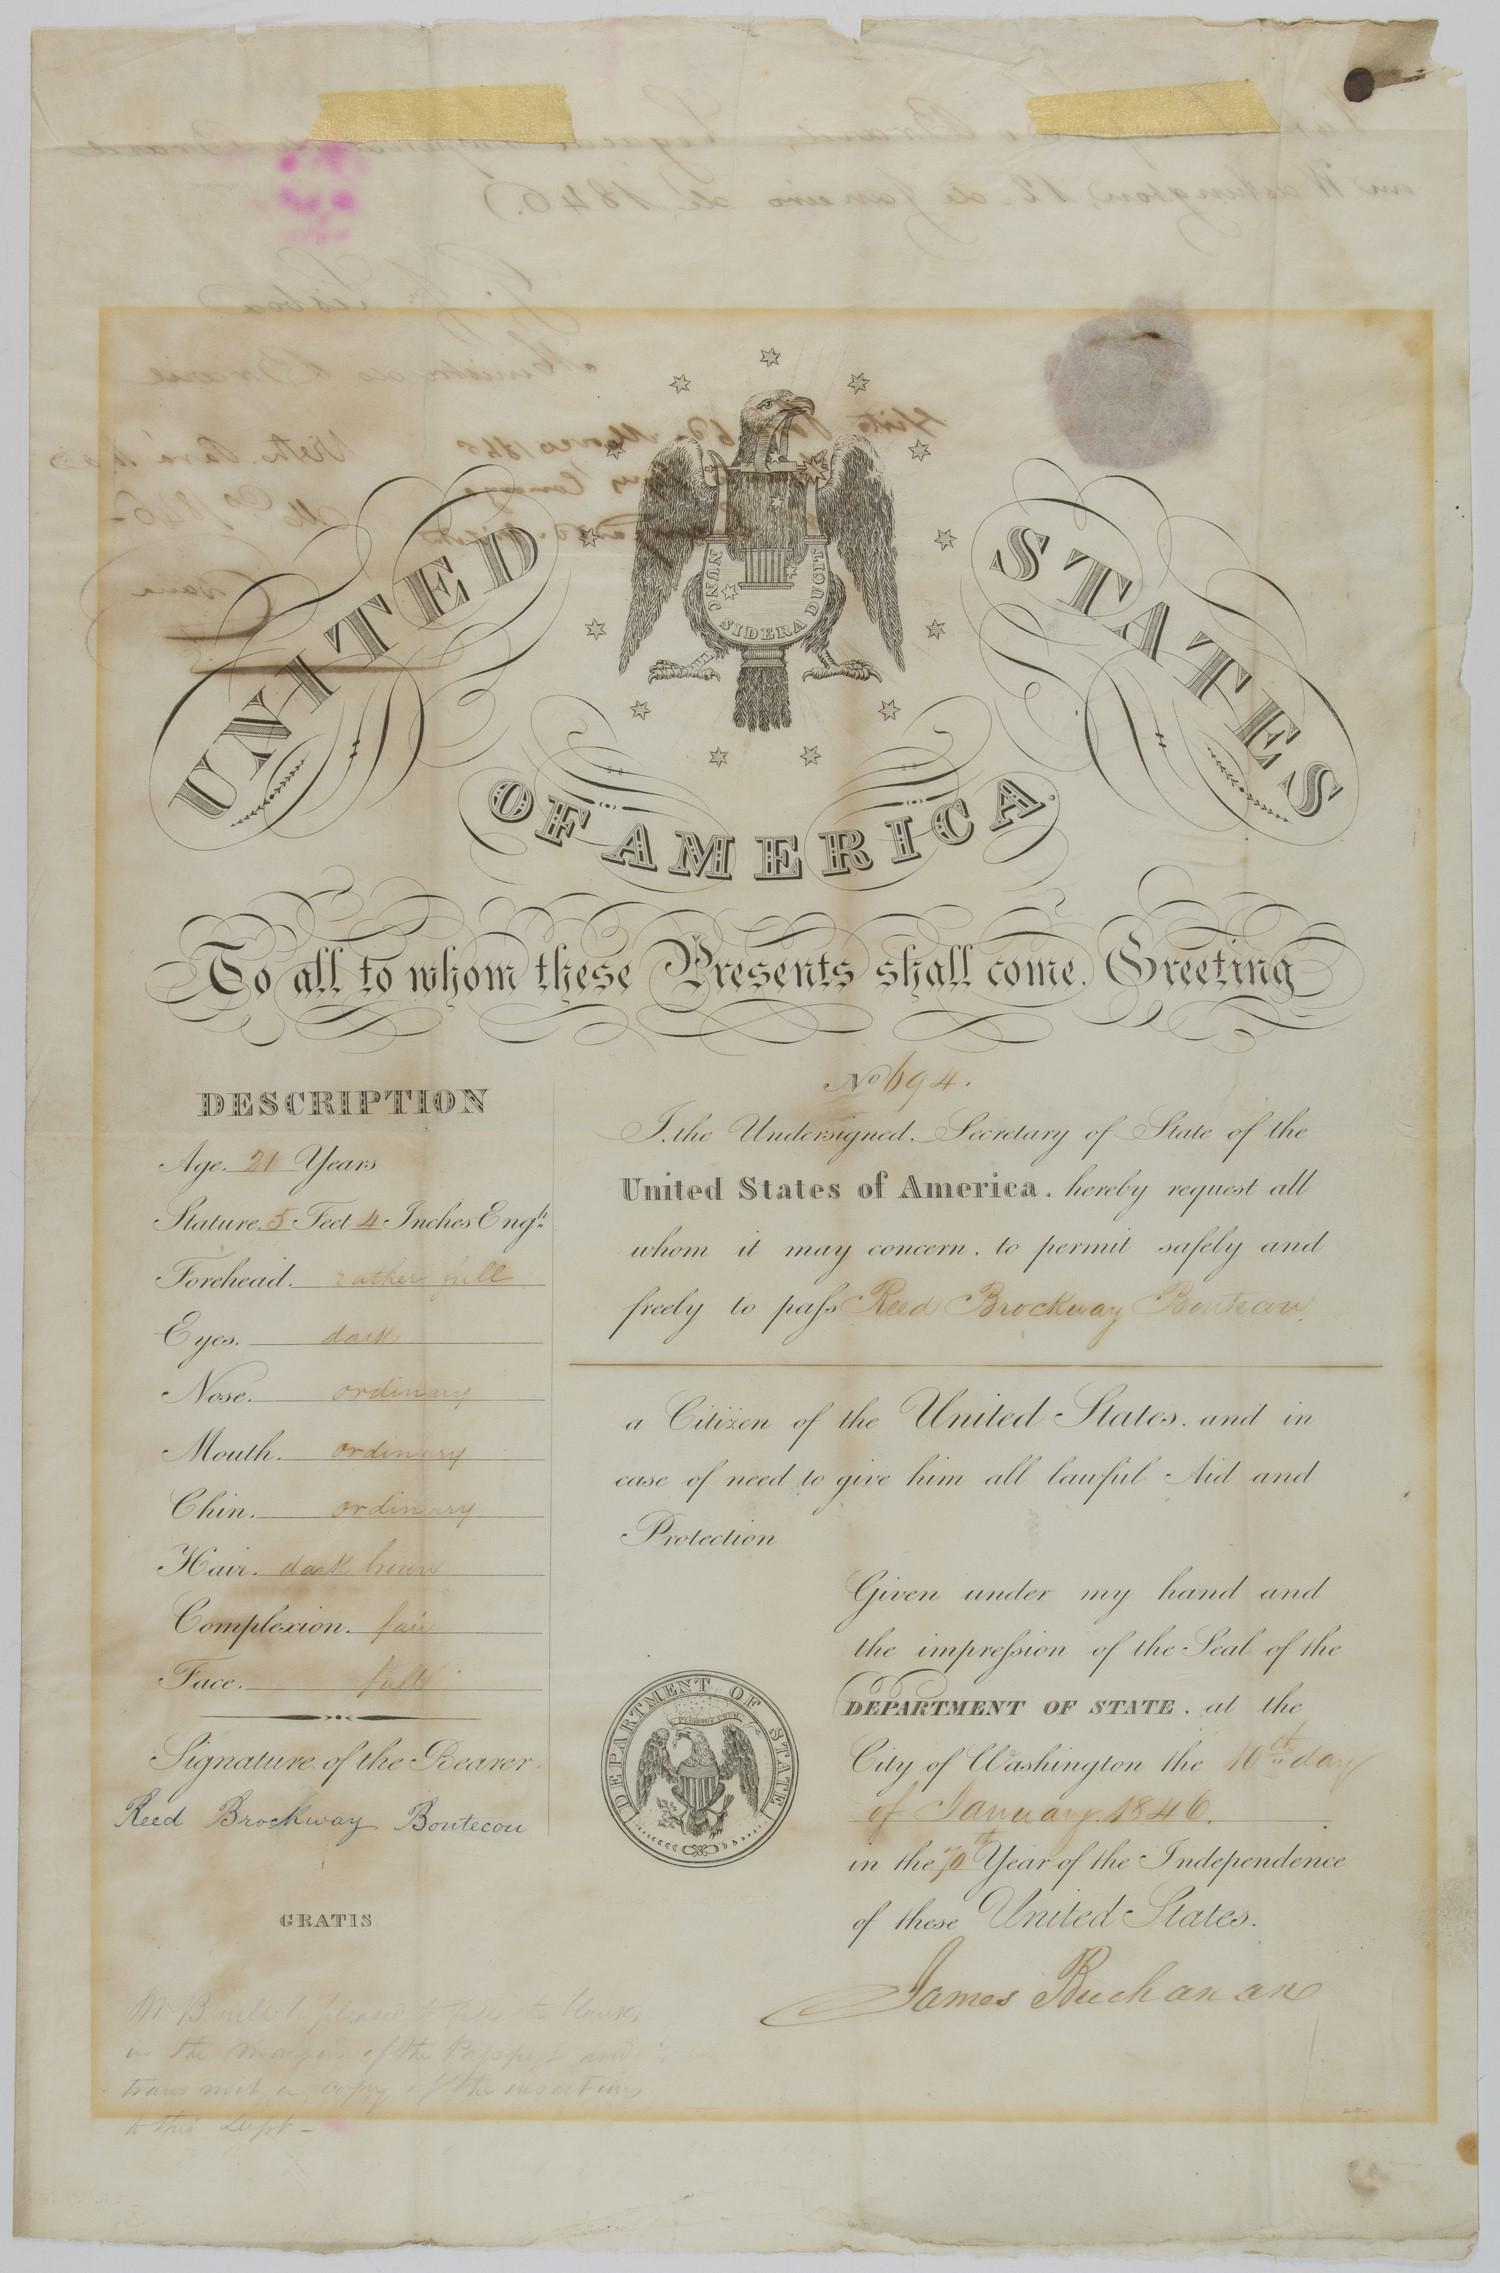 NUNC SIDERA DUCIT
UNITED STATES
OF AMERICA.
To all to whom these Presents shall come. Greeting
No 694.
DESCRIPTION
Age. 21 Years
Stature. 5 Feet 4 Inches Engsh.
Forehead. rather full
Eyes. dark
Nose. ordinary
Mouth. ordinary
Chin. ordinary
Hair. dark brown
Complexion. fair
Face. full
Signature of the Bearer.
Reed Brockway Bontecou
GRATIS
in the margin of the Passport and
transmit a copy of the insertions
to this Dept-
I, the Undersigned, Secretary of State of the
United States of America, hereby request all
whom it may concern, to permit safely and
freely to pass Reed Brockway Bontecou
a Citizen of the United States, and in
case of need to give him all lawful Aid and
Protection
Given under my hand and
the impression of the Seal of the
DEPARTMENT OF STATE, at the
City of Washington the 10th day
of January 1846.
in the 70th Year of the Independence
of these United States.
James Buchanan
DEPARTMENT OF STATE
E PLURIBUS UNUM